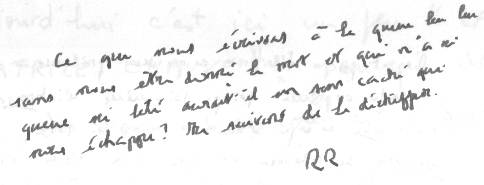 Ce que nous écrivons à la queue leu leu
sans nous être donné le mot et qui n'a ni
queue ni tête aurait-il un sens caché qui
nous échappe ? de le déchiffrer.
RR